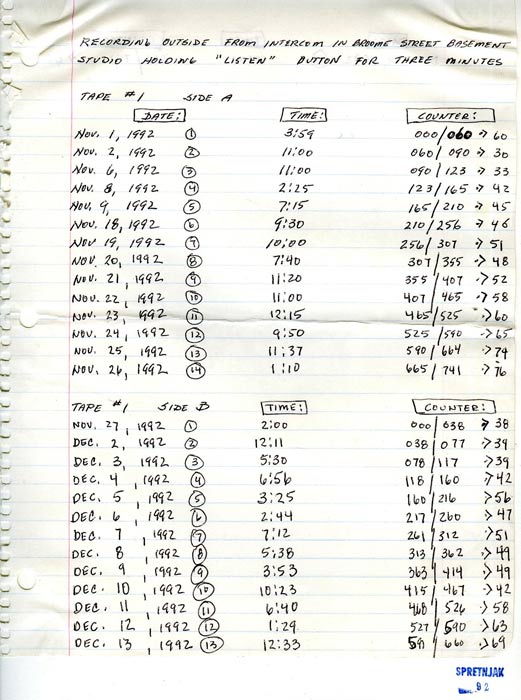 RECORDING OUTSIDE FROM INTERCOM IN BROOME STREET BASEMENT
STUDIO HOLDING "LISTEN" BUTTON FOR THREE MINUTES
TAPE #1 SIDE A
DATE: TIME: COUNTER:
NOV. 1, 1992 ① 3:59 000/060 → 60
NOV. 2, 1992 ② 11:00 060/090 → 30
NOV. 6, 1992 ③ 11:00 090/123 → 33
NOV. 8, 1992 ④ 2:25 123/165 → 42
NOV. 9, 1992 ⑤ 7:15 165/210 → 45
NOV. 18, 1992 ⑥ 9:30 210/256 → 46
NOV 19, 1992 ⑦ 10:00 256/307 → 51
NOV. 20, 1992 ⑧ 7:40 307/355 → 48
NOV. 21, 1992 ⑨ 11:20 355/407 → 52
NOV. 22, 1992 ⑩ 11:00 407/465 → 58
NOV. 23, 1992 ⑪ 12:15 465/525 → 60
NOV. 24, 1992 ⑫ 9:50 525/590 → 65
NOV. 25, 1992 ⑬ 11:37 590/664 → 74
NOV. 26, 1992 ⑭ 1:10 665/741 → 76
TAPE #1 SIDE B TIME: COUNTER:
NOV. 27, 1992 ① 2:00 000/038 → 38
DEC. 2, 1992 ② 12:11 038/077 → 39
DEC. 3, 1992 ③ 5:30 078/117 → 39
DEC. 4, 1992 ④ 6:56 118/160 → 42
DEC. 5, 1992 ⑤ 3:25 160/216 → 56
DEC. 6, 1992 ⑥ 2:44 217/260 → 47
DEC. 7, 1992 ⑦ 7:12 261/312 → 51
DEC. 8, 1992 ⑧ 5:38 313/362 → 49
DEC. 9, 1992 ⑨ 3:53 363/414 → 49
DEC. 10, 1992 ⑩ 10:23 415/467 → 42
DEC. 11, 1992 ⑪ 6:40 468/526 → 58
DEC. 12, 1992 ⑫ 1:29 527/590 → 63
DEC. 13, 1992 ⑬ 12:33 591/660 → 69
SPRETNJAK
92